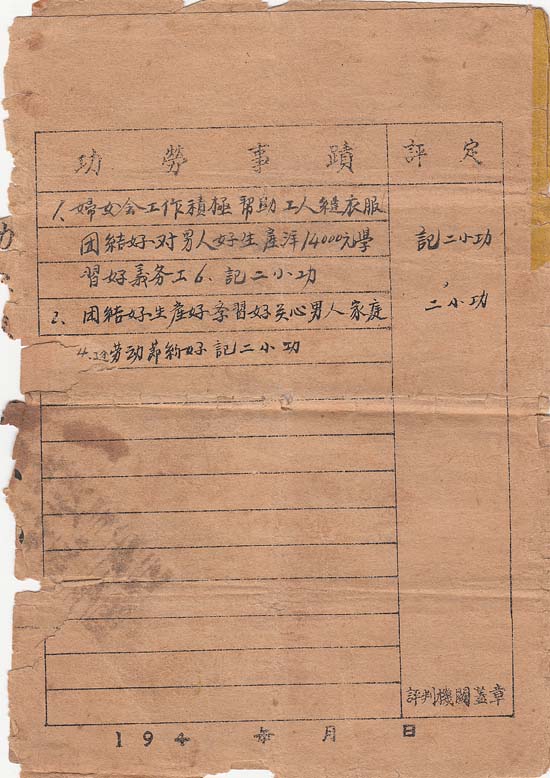 功勞事蹟 評定
1、婦女会工作積極帮助工人縫衣服
团結好对男人好生產洋14000元學 記二小功
習好義务工6、記二小功
2、团結好生產好学習好关心男人家庭 二小功
劳动節約好記二小功
194 年 月 日
評判機關蓋章